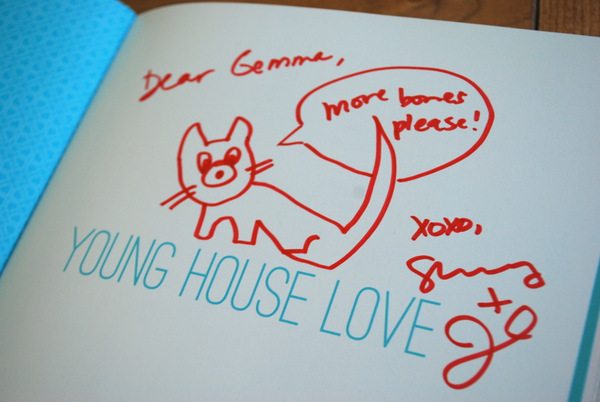 Dear Gemma,
more bones
please!
xoxo,
YOUNG HOUSE LOVE
+